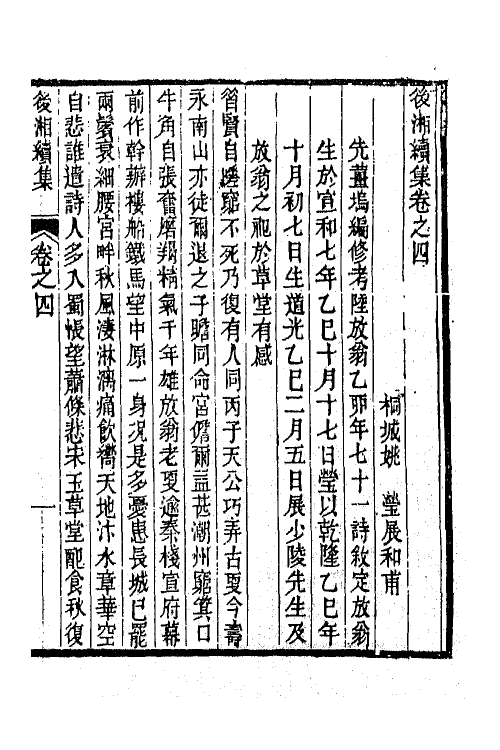 後湘續集卷之四
桐城姚　瑩展和甫
先薑塢編修考陸放翁乙卯年七十一詩敘定放翁
生於宣和七年乙巳十月十七日瑩以乾隆乙巳年
十月初七日生道光乙巳二月五日展少陵先生及
放翁之祀於草堂有感
昔賢自歎窮不死乃復有人同丙子天公巧弄古更今壽
永南山亦徒爾退之子瞻同命宮儋爾益甚潮州窮箕口
牛角自張奮磨羯精氣千年雄放翁老更逾秦棧宣府幕
前作幹辦樓船鐵馬望中原一身況是多憂患長城已罷
兩鬢衰細腰宮畔秋風淒淋漓痛飲謫天地汴水章華空
自悲誰遣詩人多入蜀悵望蕭條悲宋玉草堂配食秋復
後湘續集
卷之四
一